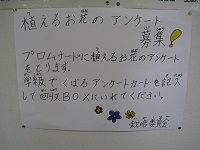 植えるお花のアンケート
募集!
プロムナードに植えるお花のアンケート
をとります。
学級でくばるアンケートカードを記入
して回収BOXにいれてください。
栽培委員会